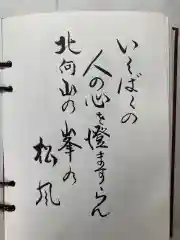 いくばくの
人の心を燈ますらん
北向山の峯の
松風